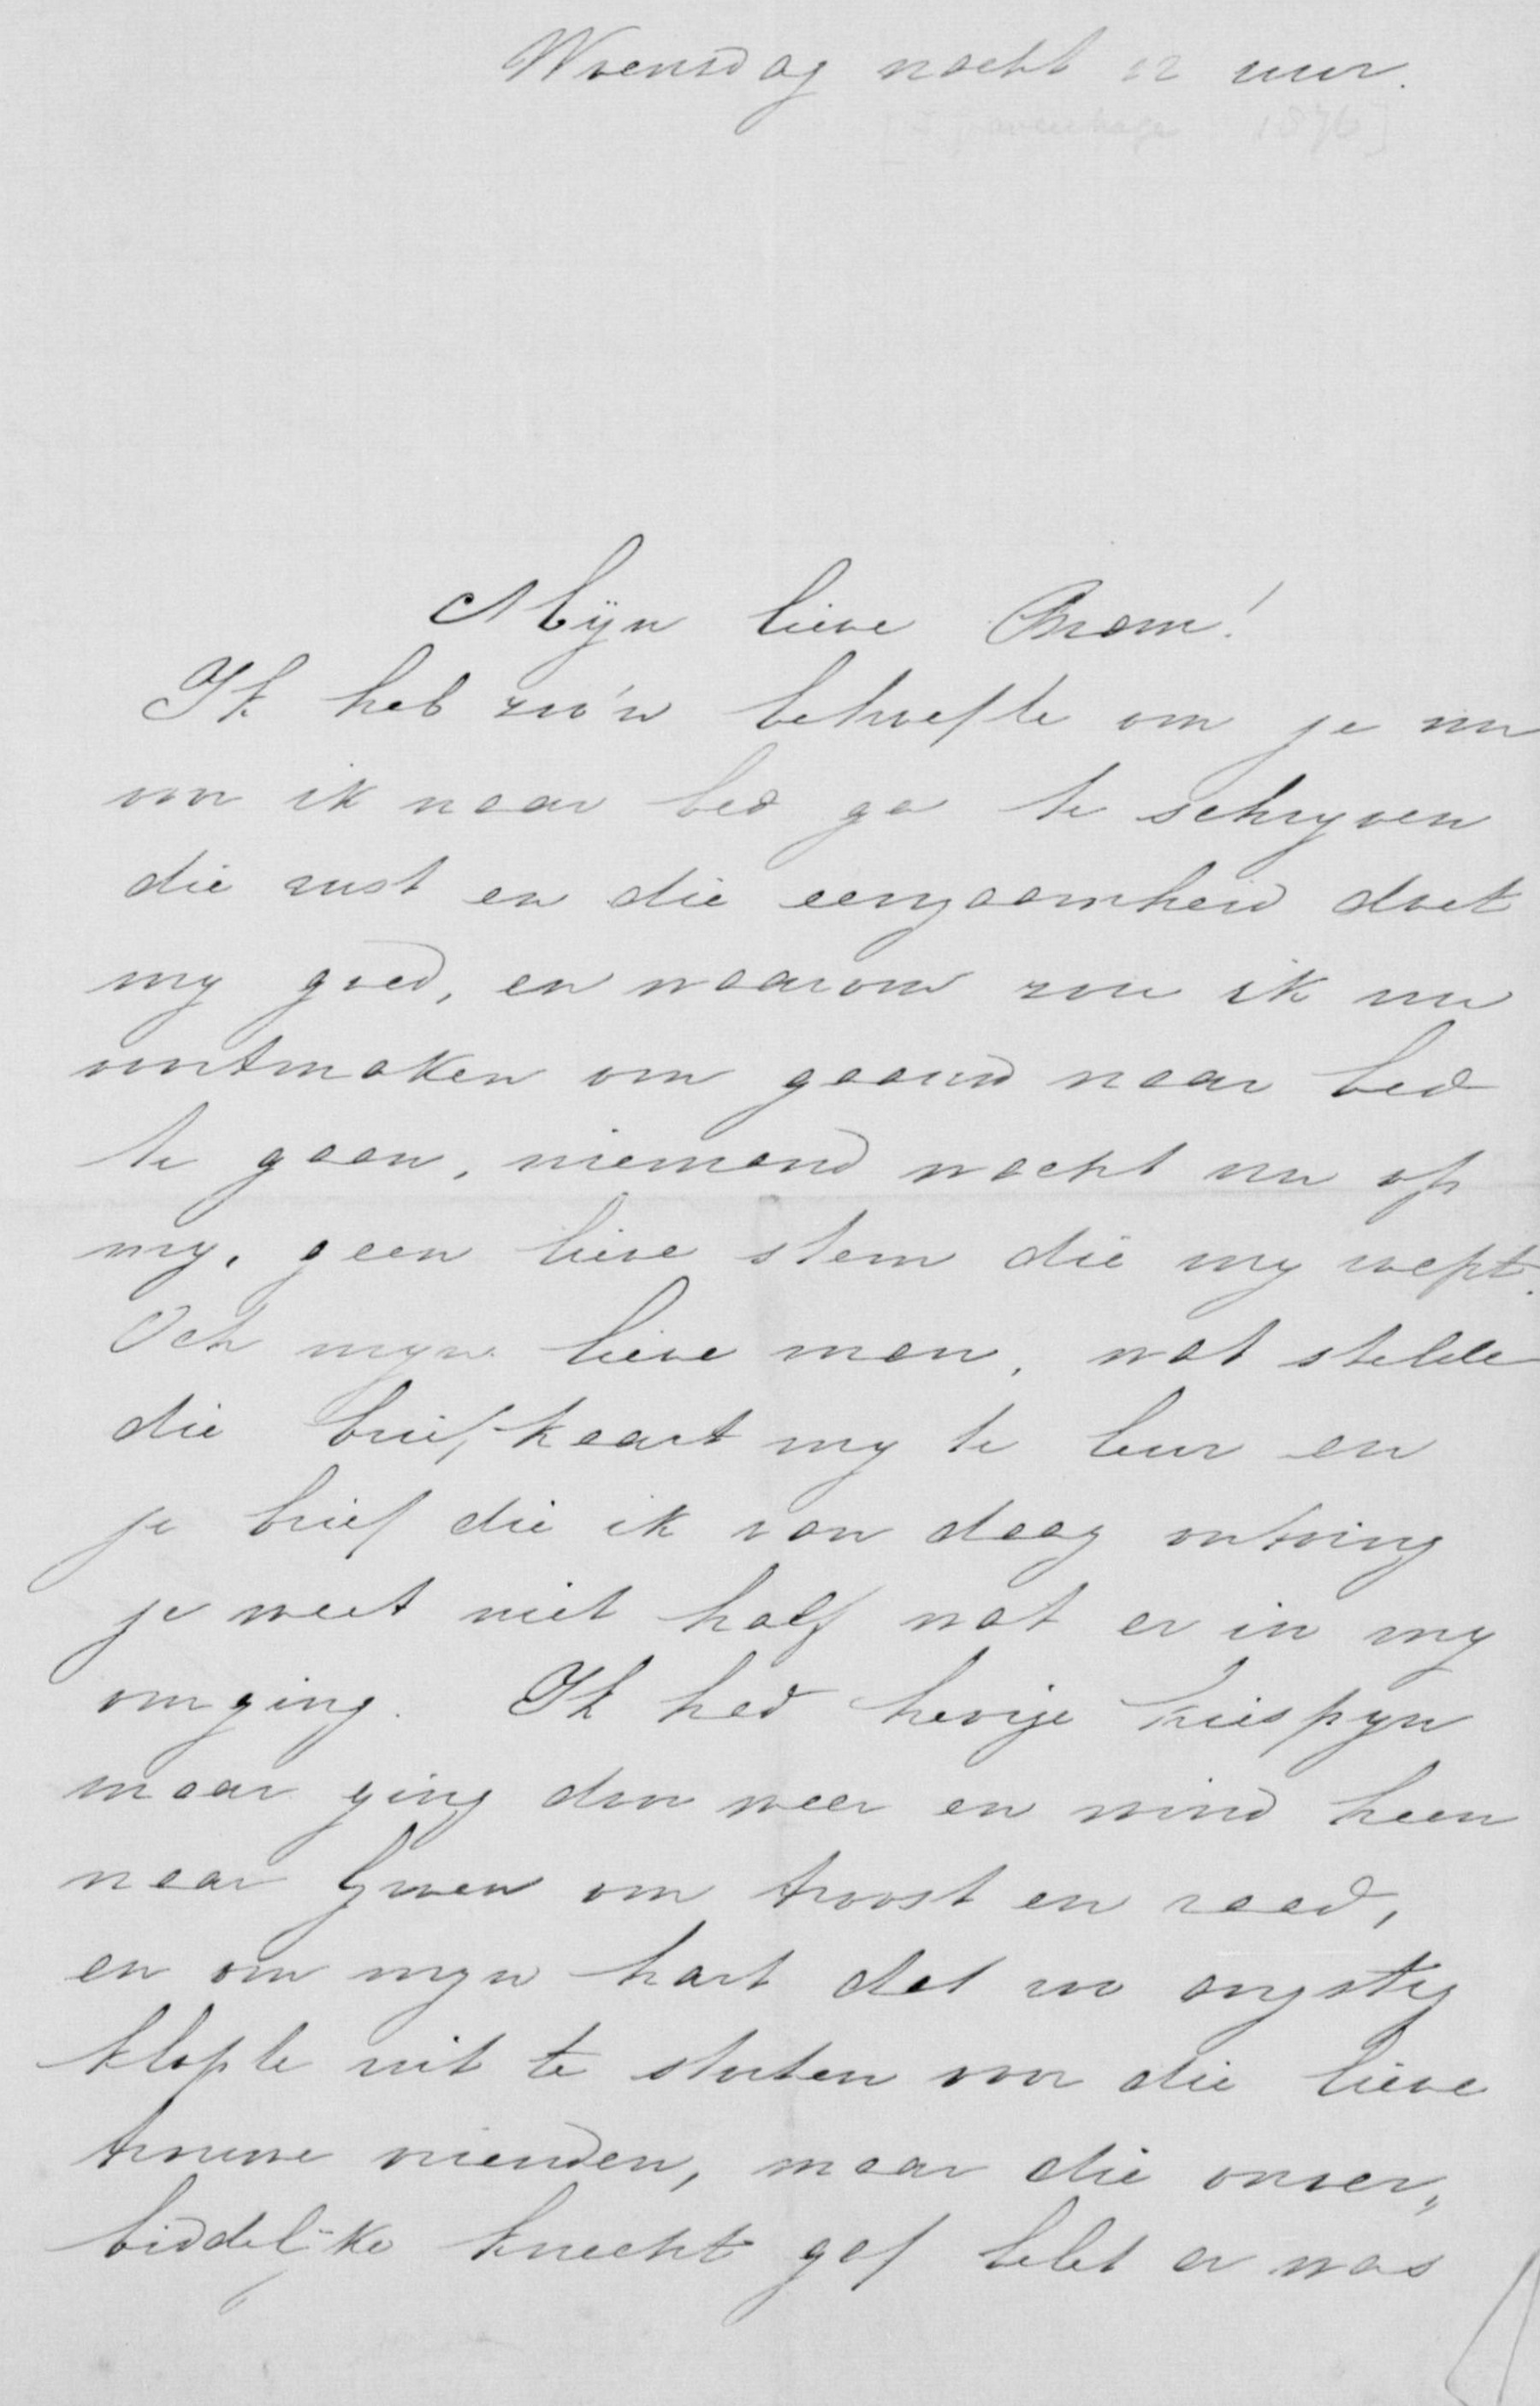 Woensdag nacht 12 uur.
['s Gravenhage 1876]
Mijn lieve Bram!
Ik heb zoo'n behoefte om je nu
voor ik naar bed ga te schryven
die rust en die eenzaamheid doet
my goed, en waarom zou ik nu
voortmaken om gaauw naar bed
te gaan, niemand wacht nu op
my, geen lieve stem die my roept.
Och myn lieve man, wat stelde
die briefkaart my te leur en
je brief die ik van daag ontving
je weet niet half wat er in my
omging. Ik had hevige kiespyn
maar ging door weer en wind heen
naar om troost en raad,
en om myn hart dat zoo angstig
klopte uit te storten voor die lieve
trouwe vrienden, maar die onver„
biddelijke knecht gaf belet er was